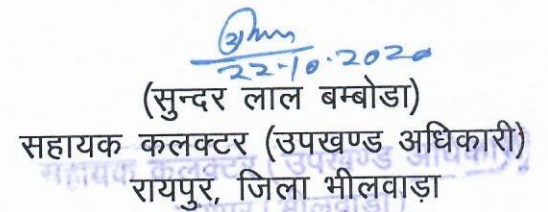 22-10-2020
(सुन्दर लाल बम्बोडा)
सहायक कलक्टर (उपखण्ड अधिकारी)
सहायक कलक्टर (उपखण्ड अधिकारी)
रायपुर, जिला भीलवाड़ा